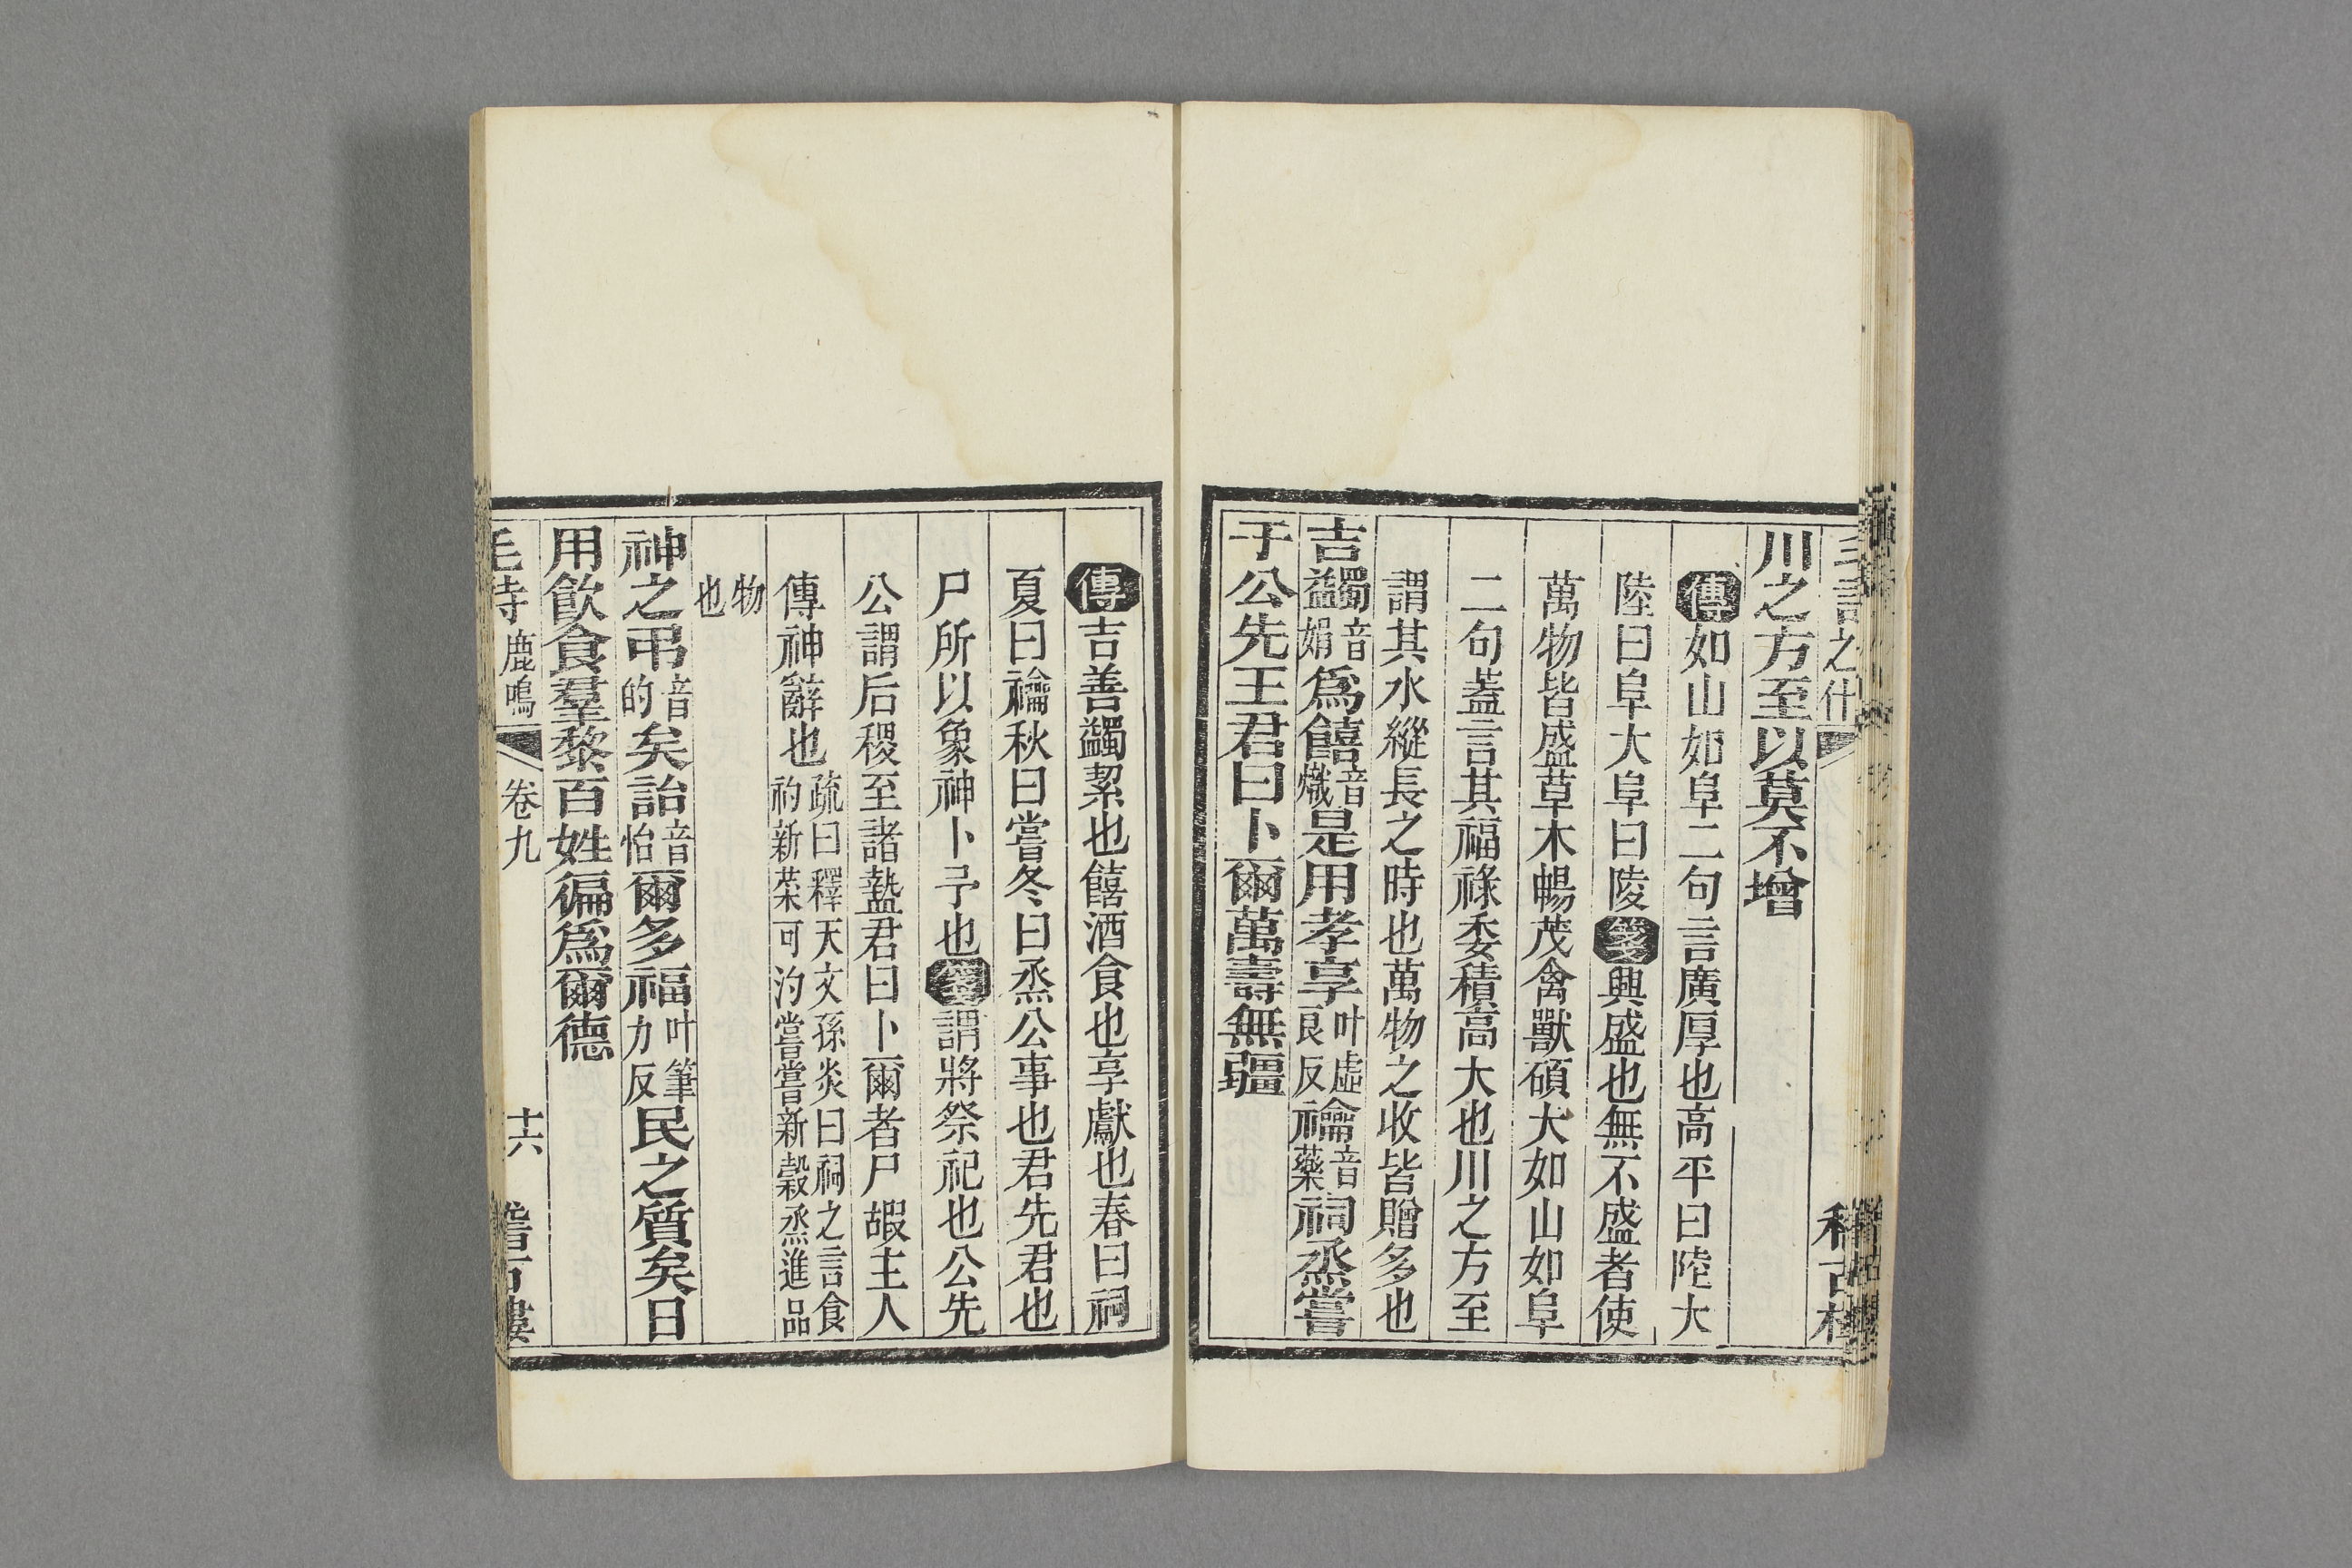 川之方至以莫不增
傳如山如阜二句言廣厚也高平曰陸大
陸曰阜大阜曰陵箋興盛也無不盛者使
萬物皆盛草木暢茂禽獸碩大如山如阜
二句蓋言其福祿委積高大也川之方至
謂其水縱長之時也萬物之收皆贈多也
吉蠲音娟爲饎音熾是用孝享叶虛良反禴音藥祠烝嘗
于公先王君曰卜爾萬壽無疆
傳吉善蠲絜也饎酒食也享獻也春曰祠
夏曰禴秋曰嘗冬曰烝公事也君先君也
尸所以象神卜予也箋謂將祭祀也公先
公謂后稷至諸盩君曰卜爾者尸嘏主人
傳神辭也疏曰釋天文孫炎曰祠之言食礿新菜可汋嘗嘗新穀烝進品
物也
神之弔音的矣詒音怡爾多福叶筆力反民之質矣日
用飲食羣黎百姓徧爲爾德
毛詩鹿鳴 卷九 十六